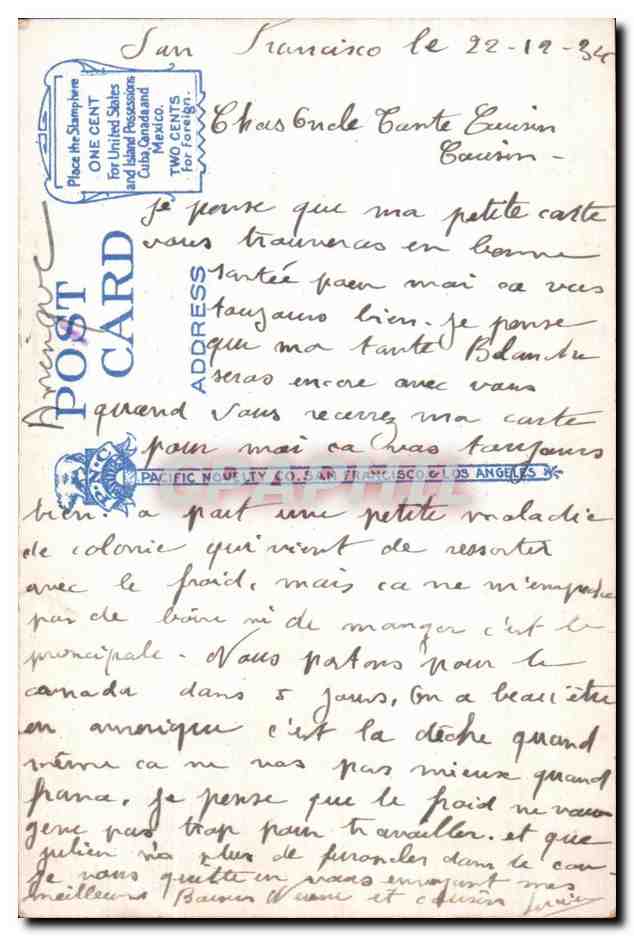 San Francisco le 22-12-34
Place the Stamp here
ONE CENT
For United States
and Island Possessions
Cuba, Canada and
Mexico.
TWO CENTS
for Foreign.
Chas Oncle Tante Cousin
Cousin -
je pense que ma petite carte
vous trouveras en bonne
santée pour moi ca vas
toujours bien. je pense
que ma tante Blanche
seras encore avec vous
quand vous recevrez ma carte
pour moi ca vas toujours
POST CARD
ADDRESS
P.N.C.
PACIFIC NOVELTY CO. SAN FRANCISCO & LOS ANGELES
bien. a part une petite maladie
de colonie qui vient de ressortir
avec le froid, mais ca ne m'empeche
pas de boire ni de manger c'est le
principale. Nous partons pour le
canada dans 5 jours. On a beau être
en amerique c'est la dèche quand
même ca ne vas pas mieux quand
france. je pense que le froid ne vous
gene pas trop pour travailler. et que
julien n'a plus de furoncles dans le cou
je vous quitte en vous envoyant mes
meilleurs Baisers Neveu et cousin
Amérique